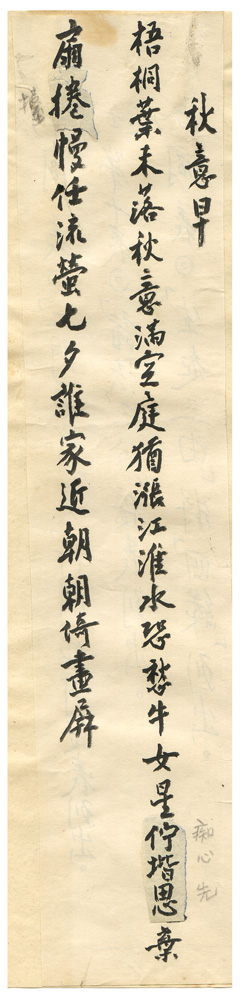 秋意早
梧桐葉未落秋意滿空庭猶漲江淮水恐愁牛女星佇堦思棄
痴心先
扇捲慢任流螢七夕誰家近朝朝倚畫屏